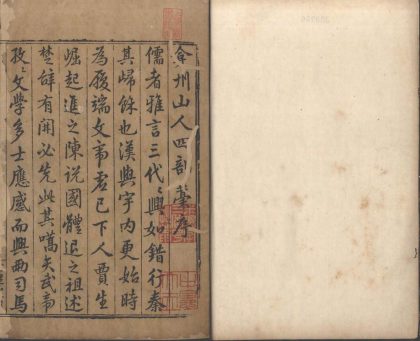 弇州山人四部藁序
儒者雅言三代〻興如錯行秦
其歸餘也漢興宇內更始時
為發端文帝虛己下人賈生
崛起進之陳說國體退之祖述
楚辭有開必先此其嚆矢武帝
孜〻文學多士應感而興兩司馬